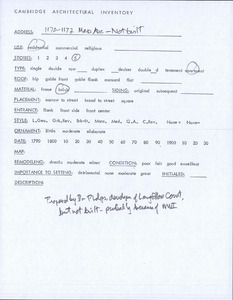 CAMBRIDGE ARCHITECTURAL INVENTORY
ADDRESS: 1170-1172 Mass Ave - Not built
USE: residential commercial religious
STORIES: 1 2 3 4 5
TYPE: single double row duplex decker tenement apartment
ROOF: hip gable front gable flank mansard flat
MATERIAL: frame brick SIDING: original subsequent
PLACEMENT: narrow to street broad to street square
ENTRANCE: flank front side front center
STYLE:
ORNAMENT: little moderate elaborate
DATE: 1790 1800 10 20 30 40 50 60 70 80 90 1900 10 20 30
MAP:
REMODELING: drastic moderate minor CONDITION: poor fair good excellent
IMPORTANCE TO SETTING: detrimental none moderate great INITIALED:
DESCRIPTION:
by developer of Longfellow Court,
but not built - probably because of